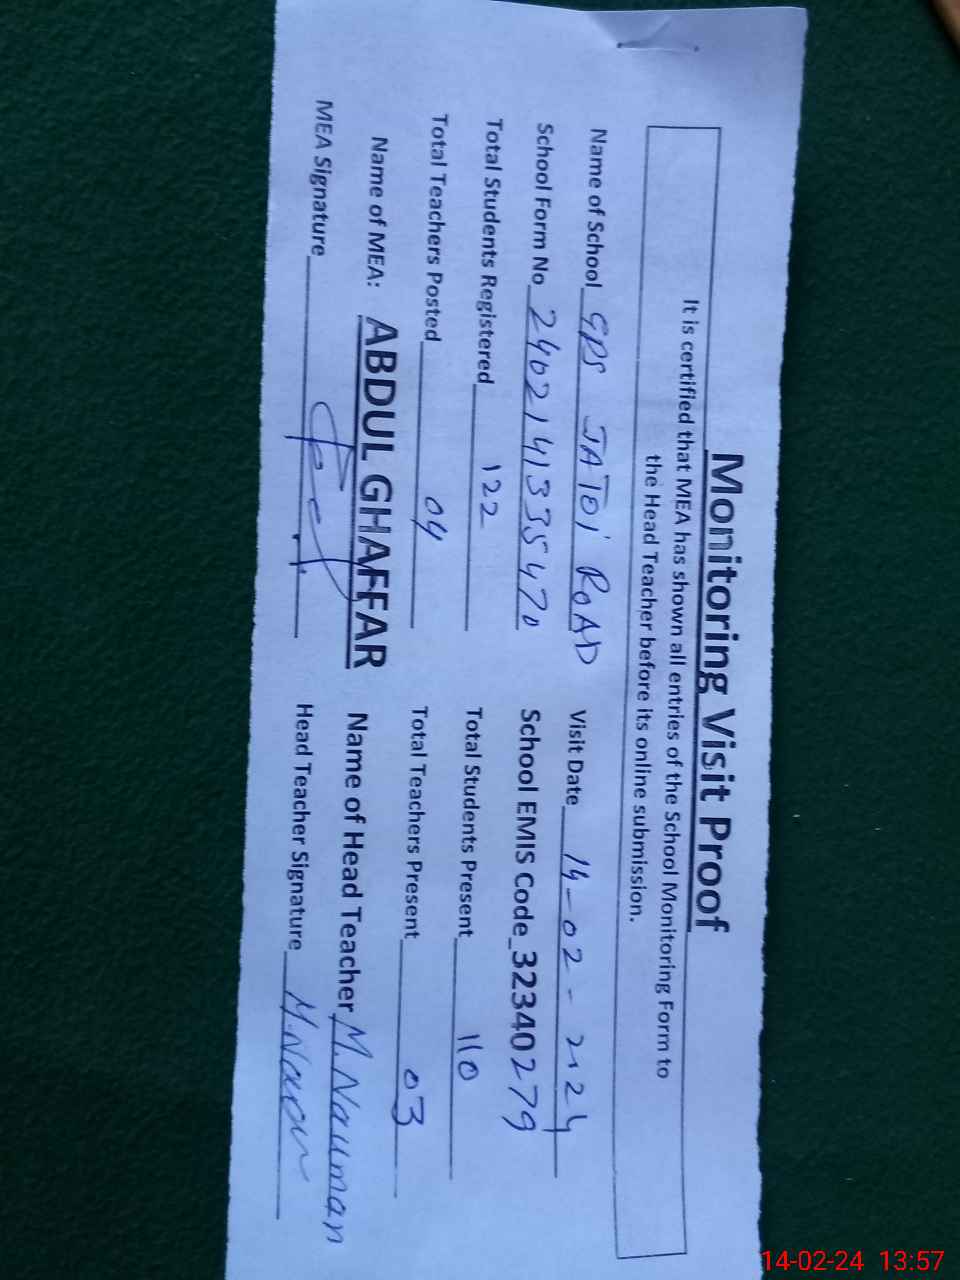 Monitoring Visit Proof
It is certified that MEA has shown all entries of the School Monitoring Form to
the Head Teacher before its online submission.
Name of School GPS JATOI ROAD Visit Date 14-02-2024
School Form No 2402141335470 School EMIS Code 32340279
Total Students Registered 122 Total Students Present 110
Total Teachers Posted 04 Total Teachers Present 03
Name of MEA: ABDUL GHAFFAR Name of Head Teacher M. Nauman
MEA Signature Head Teacher Signature M.Nauman
14-02-24 13:57